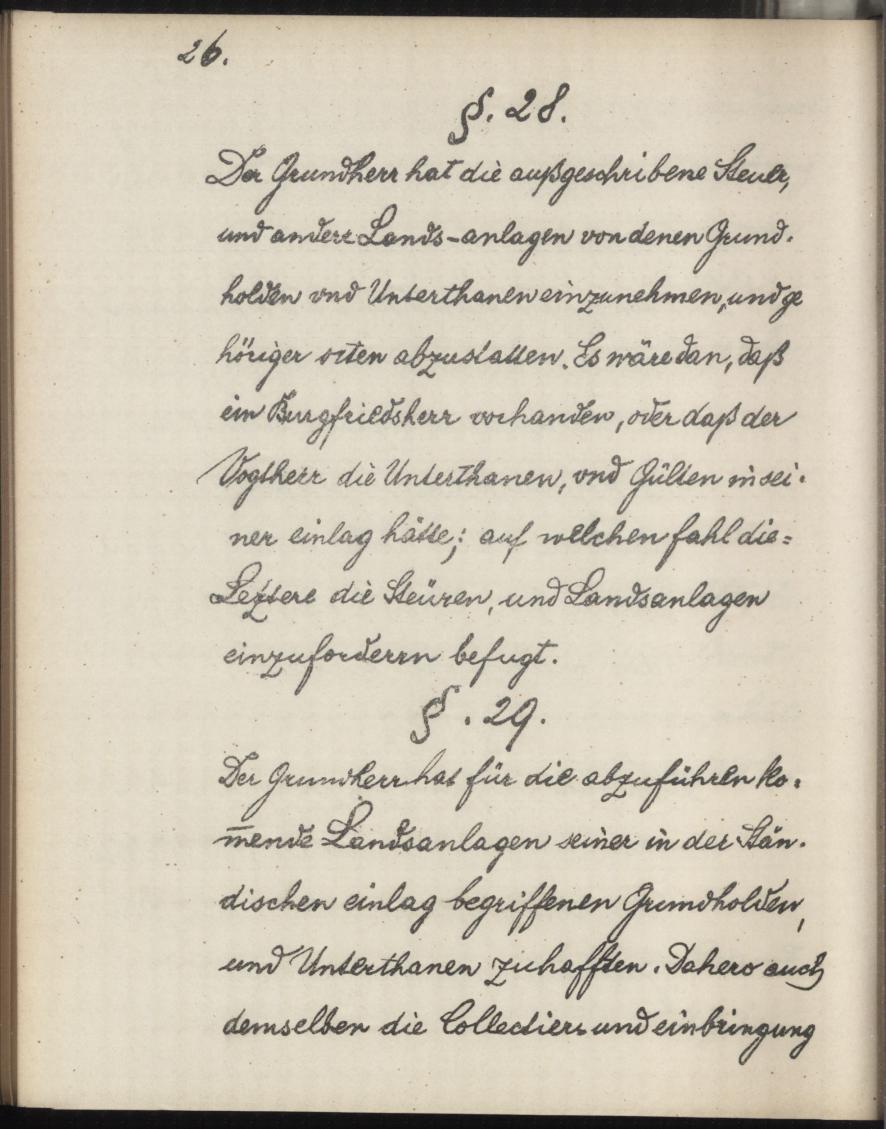 26.
§. 28.
Der Grundherr hat die außgeschribene Steuer,
und andere Lands-anlagen von denen Grund-
holden vnd Unterthanen einzunehmen, und ge
höriger orten abzustatten. Es wäre dan, daß
ein Burgfriedsherr vorhanden, oder daß der
Vogtherr die Unterthanen, vnd Gülten in sei-
ner einlag hätte; auf welchen fahl die=
Leztere die Steüren, und Landsanlagen
einzuforderrn befugt.
§. 29.
Der Grundherr hat für die abzuführen ko-
m̄ende Landsanlagen seiner in der Stän-
dischen einlag begriffenen Grundholden,
und Unterthanen zuhafften. Dahero auch
demselben die Collectier- und einbringung